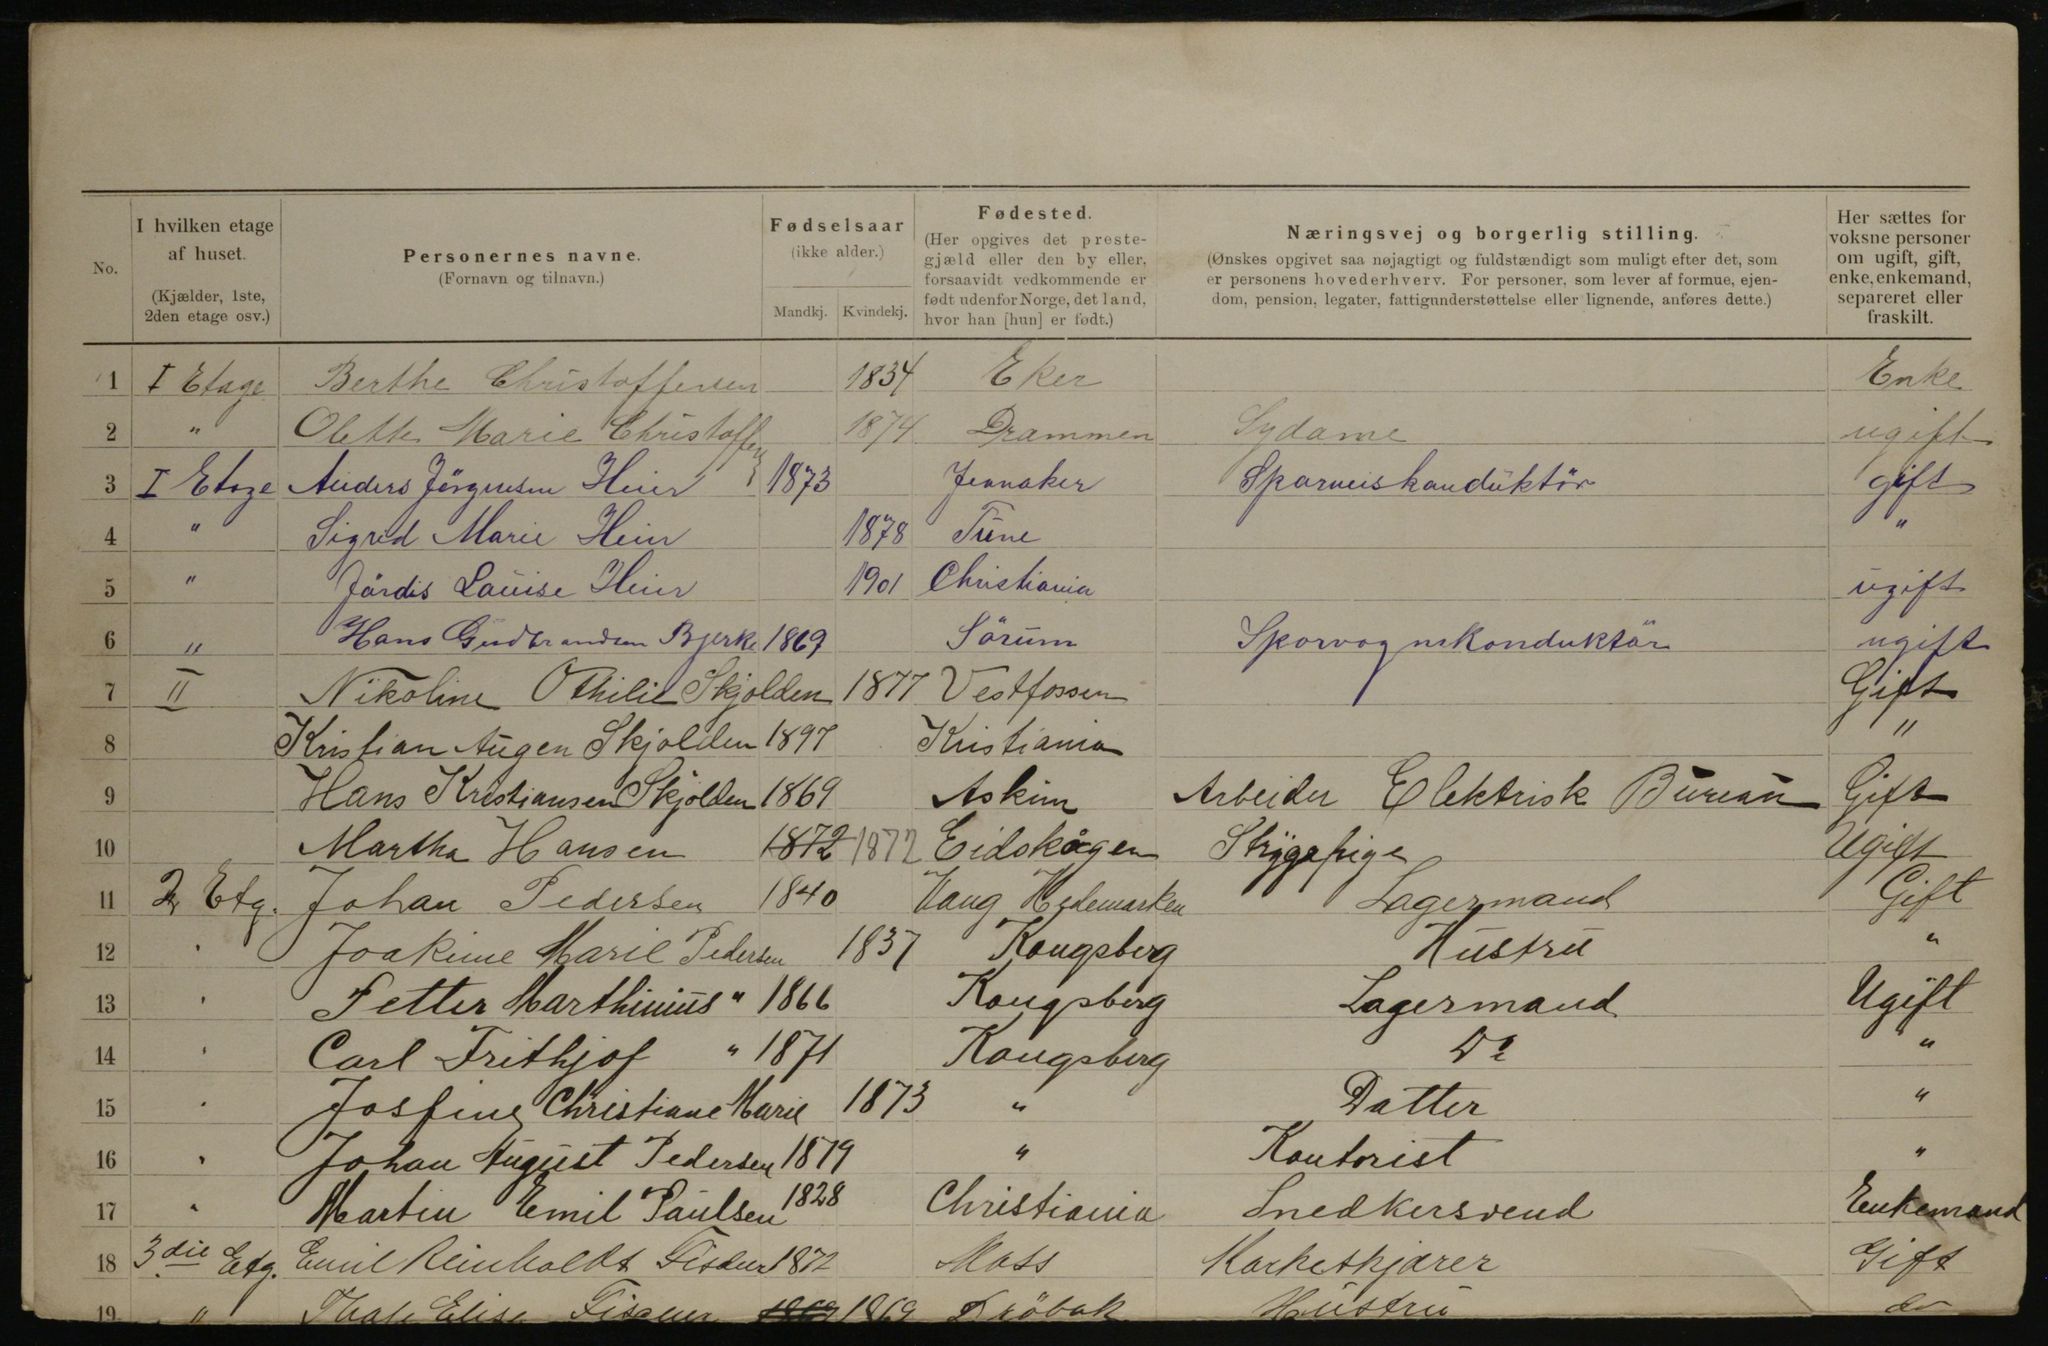 No. | I hvilken etage af huset. (Kjælder, 1ste, 2den etage osv.) | Personernes navne. (Fornavn og tilnavn.) | Fødselsaar (ikke alder.) Mandkj. Kvindekj. | Fødested. (Her opgives det prestegjæld eller den by eller, forsaavidt vedkommende er født udenfor Norge, det land, hvor han [hun] er født.) | Næringsvej og borgerlig stilling. (Ønskes opgivet saa nøjagtigt og fuldstændigt som muligt efter det, som er personens hovederhverv. For personer, som lever af formue, ejendom, pension, legater, fattigunderstøttelse eller lignende, anføres dette.) | Her sættes for voksne personer om ugift, gift, enke, enkemand, separeret eller fraskilt.
1 I Etage Berthe Christoffersen 1834 Eker Enke
2 " Olette Marie Christoffersen 1874 Drammen Sydame ugift
3 I Etage Anders Jörgensen Heier 1873 Jevnaker Sporveiskonduktör gift
4 " Sigrid Marie Heier 1878 Tune "
5 " Jördis Louise Heier 1901 Christiania ugift
6 " Hans Gudbrandsen Bjerke 1869 Sörum Sporvognskonduktör ugift
7 II Nikoline Othilie Skjolden 1877 Vestfossen Gift
8 Kristian Augen Skjolden 1897 Kristiania "
9 Hans Kristiansen Skjolden 1869 Askim Arbeider Elektrisk Bureau Gift
10 Martha Hansen 1872 1872 Eidskogen Strygepige Ugift
11 2 Etg. Johan Pedersen 1840 Vang Hedemarken Lagermand Gift
12 " Joakime Marie Pedersen 1837 Kongsberg Hustru "
13 " Petter Marthinius " 1866 Kongsberg Lagermand Ugift
14 " Carl Frithjof " 1871 Kongsberg Do "
15 " Josfine Christiane Marie 1873 " Datter "
16 " Johan August Pedersen 1879 " Kontorist "
17 " Martin Emil Paulsen 1828 Christiania Snedkersvend Enkemand
18 3die Etg. Emil Reinholdt Fischer 1872 Moss Karketskjærer Gift
19 " Elise Fischer 1869 1869 Dröbak Hustru do